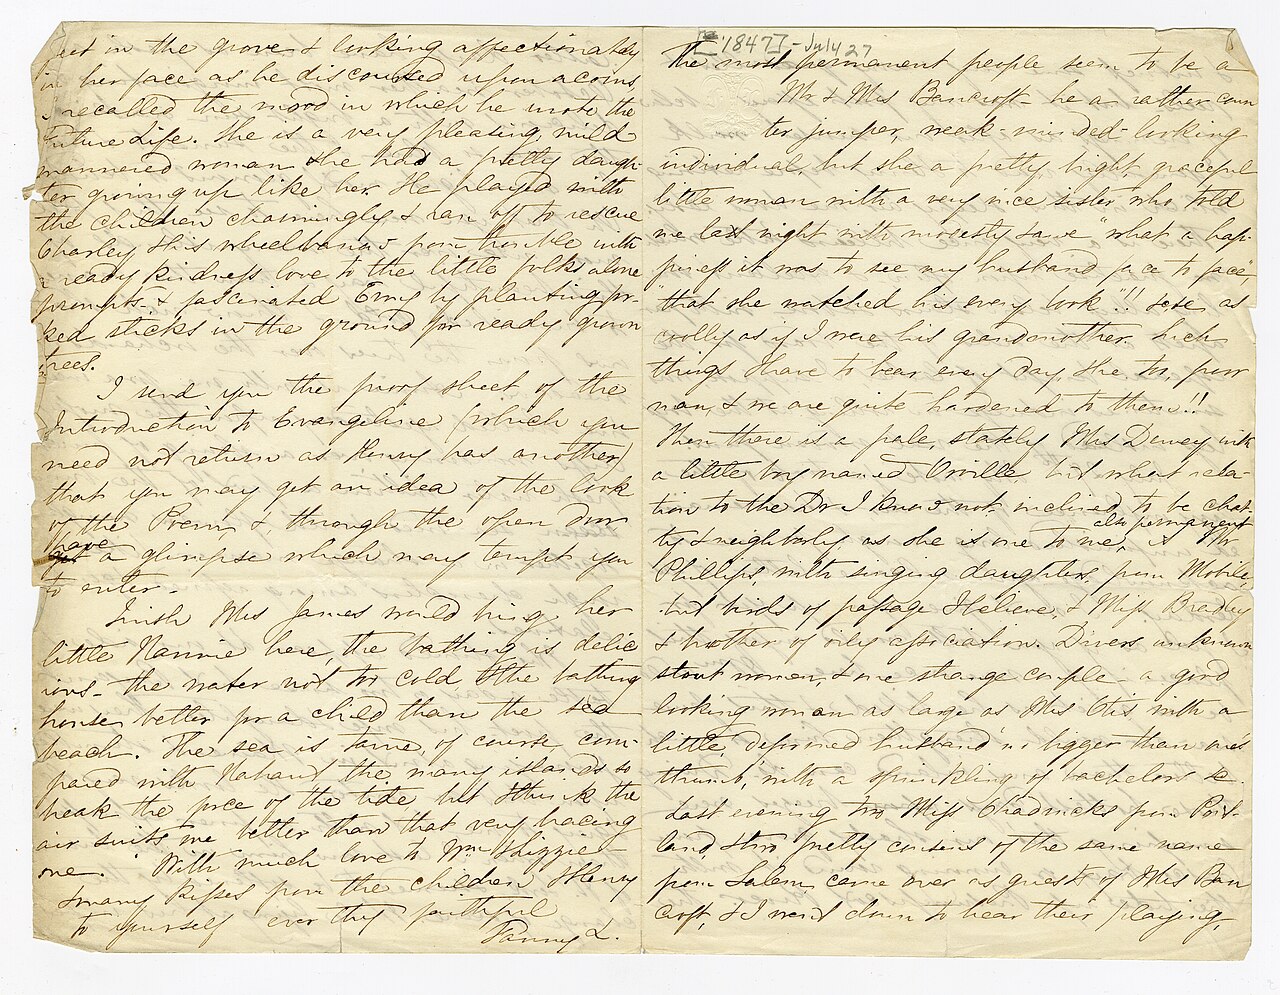 feet in the grove & looking affectionately
in her face as he discoursed upon acorns,
I recalled the mood in which he wrote the
Future Life. She is a very pleasing, mild
mannered woman & she had a pretty daugh-
ter growing up like her. He played with
the children charmingly, & ran off to rescue
Charley & his wheelbarrow from trouble with
a ready kindness love to the little folks alone
prompts & fascinated Erny by planting pr-
ked sticks in the ground for ready grown
trees.
I send you the proof sheet of the
Introduction to Evangeline (which you
need not return as Henry has another)
that you may get an idea of the look
of the Poem, &, through the open door
have a glimpse which may tempt you
to enter.
I wish Mrs James would bring her
little Nannie here, the bathing is delic
ious - the water not too cold, & the bathing
houses better for a child than the sea
beach. The sea is tame, of course, com-
pared with Nahant, the many islands so
break the force of the tide, but I think the
air suits me better than that very bracing
one. With much love to Wm & Lizzie
& many kisses from the children & Henry
to yourself ever thy faithful
Fanny L.
[1847] - July 27
The most permanent people seem to be a
Mr & Mrs Bancroft - he a rather coun
ter jumper, weak-minded-looking
individual, but she a pretty, bright, graceful
little woman with a very nice sister who told
me last night with modesty "what a hap-
piness it was to see my husband face to face",
"that she watched his every look"!! as
coolly as if I were his grandmother. Such
things I have to bear every day, he, too, poor
man, & we are quite hardened to them!!
Then there is a pale, stately Mrs Dewey with
a little boy named Orville, but what rela-
tion to the Dr I know not inclined to be chat-
ty & neighborly, as she is one to me, also permanent is Mr
Phillips, with singing daughters, from Mobile,
but birds of passage I believe, & Miss Bradley
& brother of oily association. Divers unknown
stout women, & one strange couple - a good
looking woman as large as Mrs Otis with a
little, deformed husband no bigger than one's
thumb, with a sprinkling of bachelors &c
Last evening two Miss Chadwicks from Port-
land, & two pretty cousins of the same name
from Salem, came over as guests of Mrs Ban
croft, & I went down to hear their playing,